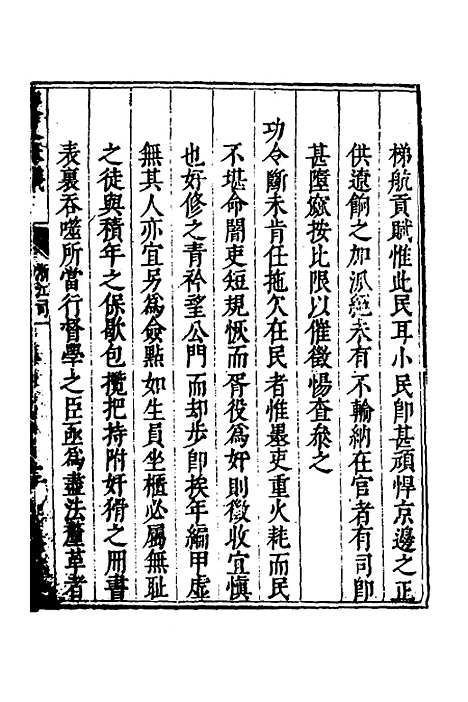 梯航貢賦惟此民耳小民卽甚頑悍京邊之正
供遼餉之加派絕未有不輸納在官者有司卽
甚墮窳按比限以催徵惕查叅之
功令斷未肯任拖欠在民者惟墨吏重火耗而民
不堪命闇吏短規恢而胥役為奸則徵收宜慎
也好修之青衿望公門而却步卽挨年編甲虛
無其人亦宜另為僉點如生員坐櫃必屬無恥
之徒與積年之保歇包攬把持附奸猾之冊書
表裏吞噬所當行督學之臣亟為盡法釐革者
浙江司